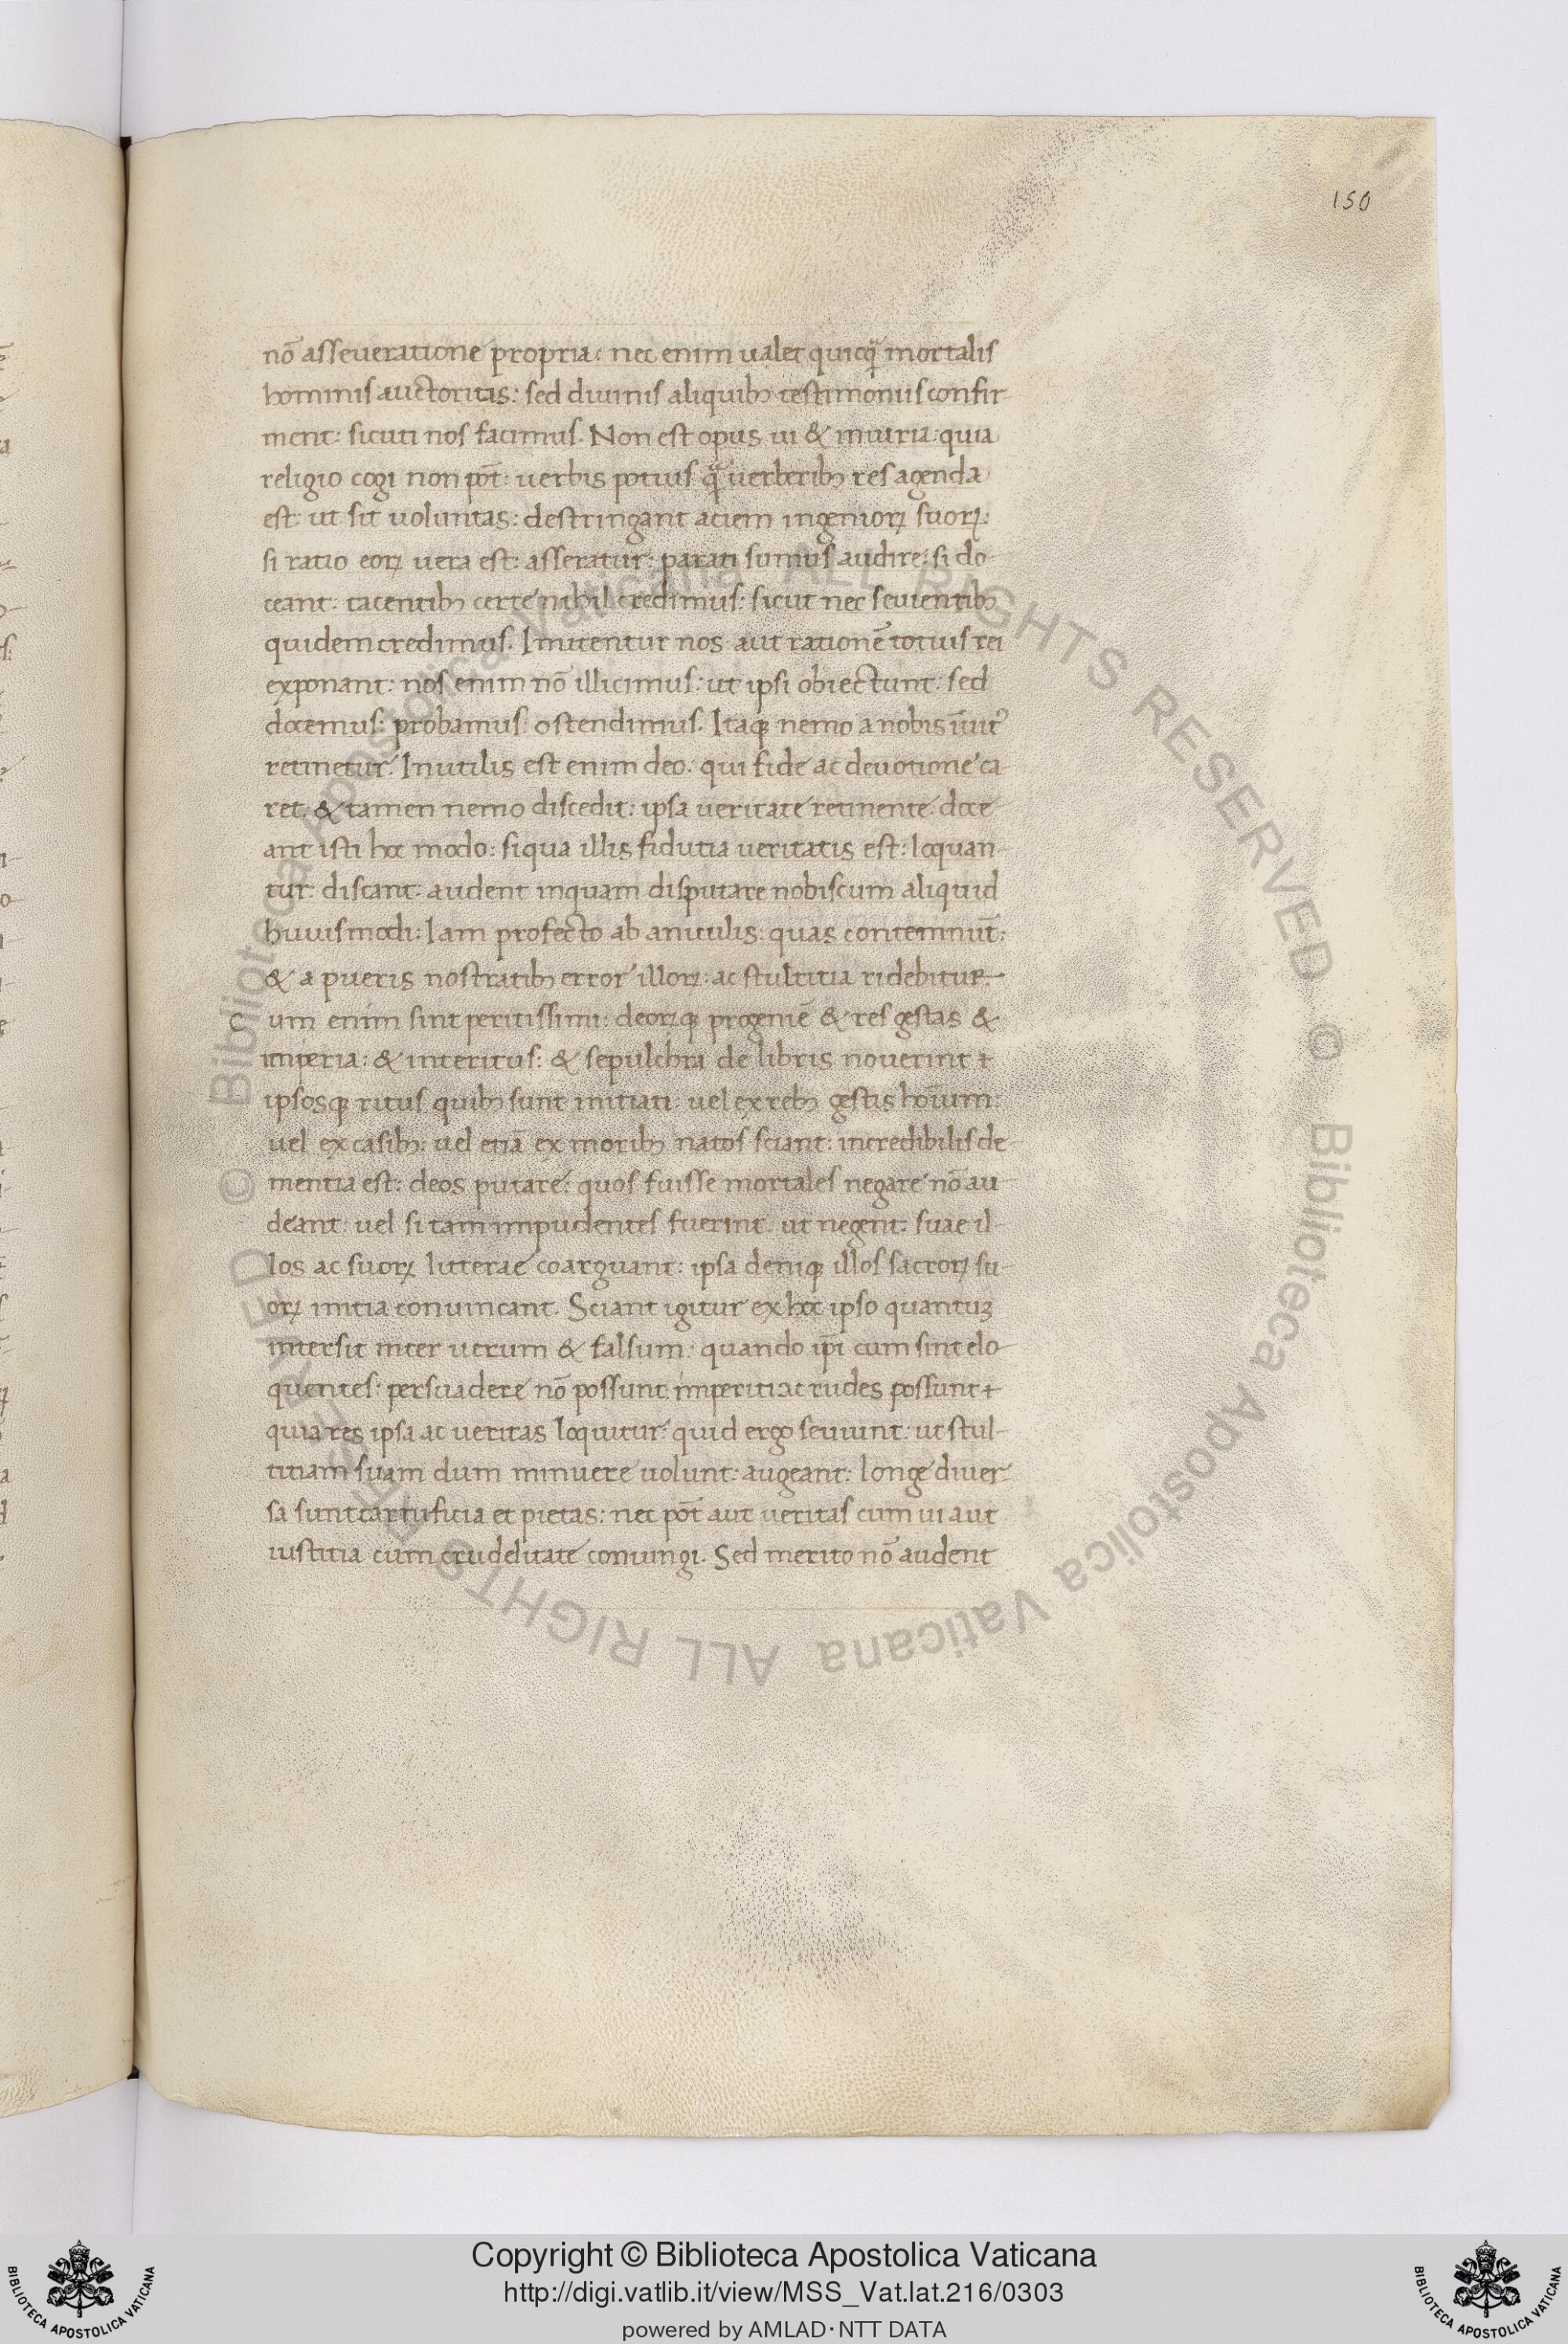 150
nō asseueratione propria: nec enim ualet quicq̄ mortalis
hominis auctoritas: sed diuinis aliquibꝫ testimoniis confir
ment: sicuti nos facimus. Non est opus ui & iniuria: quia
religio cogi non pōt: uerbis potius q̄ uerberibꝫ res agenda
est: ut sit uoluntas: destringant aciem ingenioꝝ suoꝝ:
si ratio eoꝝ uera est: asseratur: parati sumus audire: si do
ceant: tacentibꝫ certe nihil credimus: sicut nec seuientibꝫ
quidem credimus. Imitentur nos aut rationē totius rei
exponant: nos enim nō illicimus: ut ipsi obiectunt: sed
docemus: probamus: ostendimus. Itaqꝫ nemo a nobis īuit᾽
retinetur. Inutilis est enim deo. qui fide ac deuotione ca
ret. & tamen nemo discedit: ipsa ueritate retinente. doce
ant isti hoc modo: siqua illis fidutia ueritatis est: loquan-
tur. discant: audent inquam disputare nobiscum aliquid
huiusmodi: Iam profecto ab aniculis: quas contemnūt:
& a pueris nostratibꝫ error illoꝝ: ac stultitia ridebitur.
Cum enim sint peritissimi: deoꝝqꝫ progeniē & res gestas &
imperia: & interitus: & sepulchra de libris nouerint +
ipsosqꝫ ritus quibꝫ sunt initiati: uel ex rebꝫ gestis hoīum:
uel ex casibꝫ: uel etiā ex moribꝫ natos sciant: incredibilis de
mentia est: deos putare: quos fuisse mortales negare nō au
deant: uel si tam impudentes fuerint. ut negent: suae il-
los ac suoꝝ litterae coarguant: ipsa deniqꝫ illos sacroꝝ su
oꝝ initia conuincant. Sciant igitur ex hoc ipso quantuꝫ
intersit inter uerum & falsum: quando ip̄i cum sint elo
quentes: persuadere nō possunt: imperiti ac rudes possunt +
quia res ipsa ac ueritas loquitur: quid ergo seuiunt: ut stul-
titiam suam dum minuere uolunt: augeant: longe diuer
sa sunt cartuficia et pietas: nec pōt aut ueritas cum ui aut
iustitia cum crudelitate coniungi. Sed merito nō audent
Copyright © Biblioteca Apostolica Vaticana
http://digi.vatlib.it/view/MSS_Vat.lat.216/0303
powered by AMLAD·NTT DATA